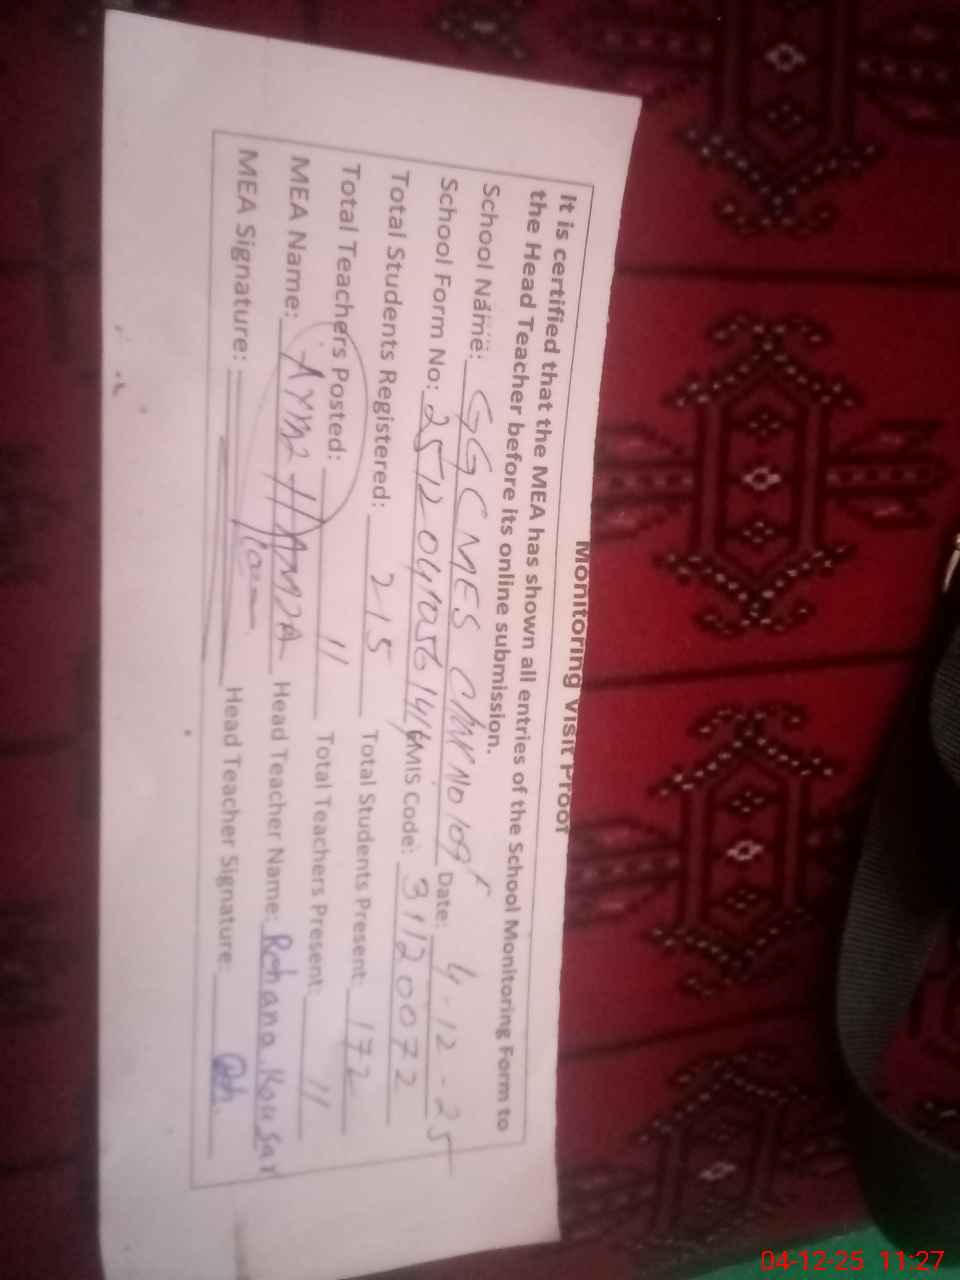 Monitoring Visit Proof
It is certified that the MEA has shown all entries of the School Monitoring Form to
the Head Teacher before its online submission.
School Name: GGCMES CHK NO 109 Date: 4-12-25
School Form No: 25120410561416 EMIS Code: 31120072
Total Students Registered: 215 Total Students Present: 172
Total Teachers Posted: 11 Total Teachers Present: 11
MEA Name: HAMZA Head Teacher Name: Rehana Kousar
MEA Signature: Head Teacher Signature:
04-12-25 11:27